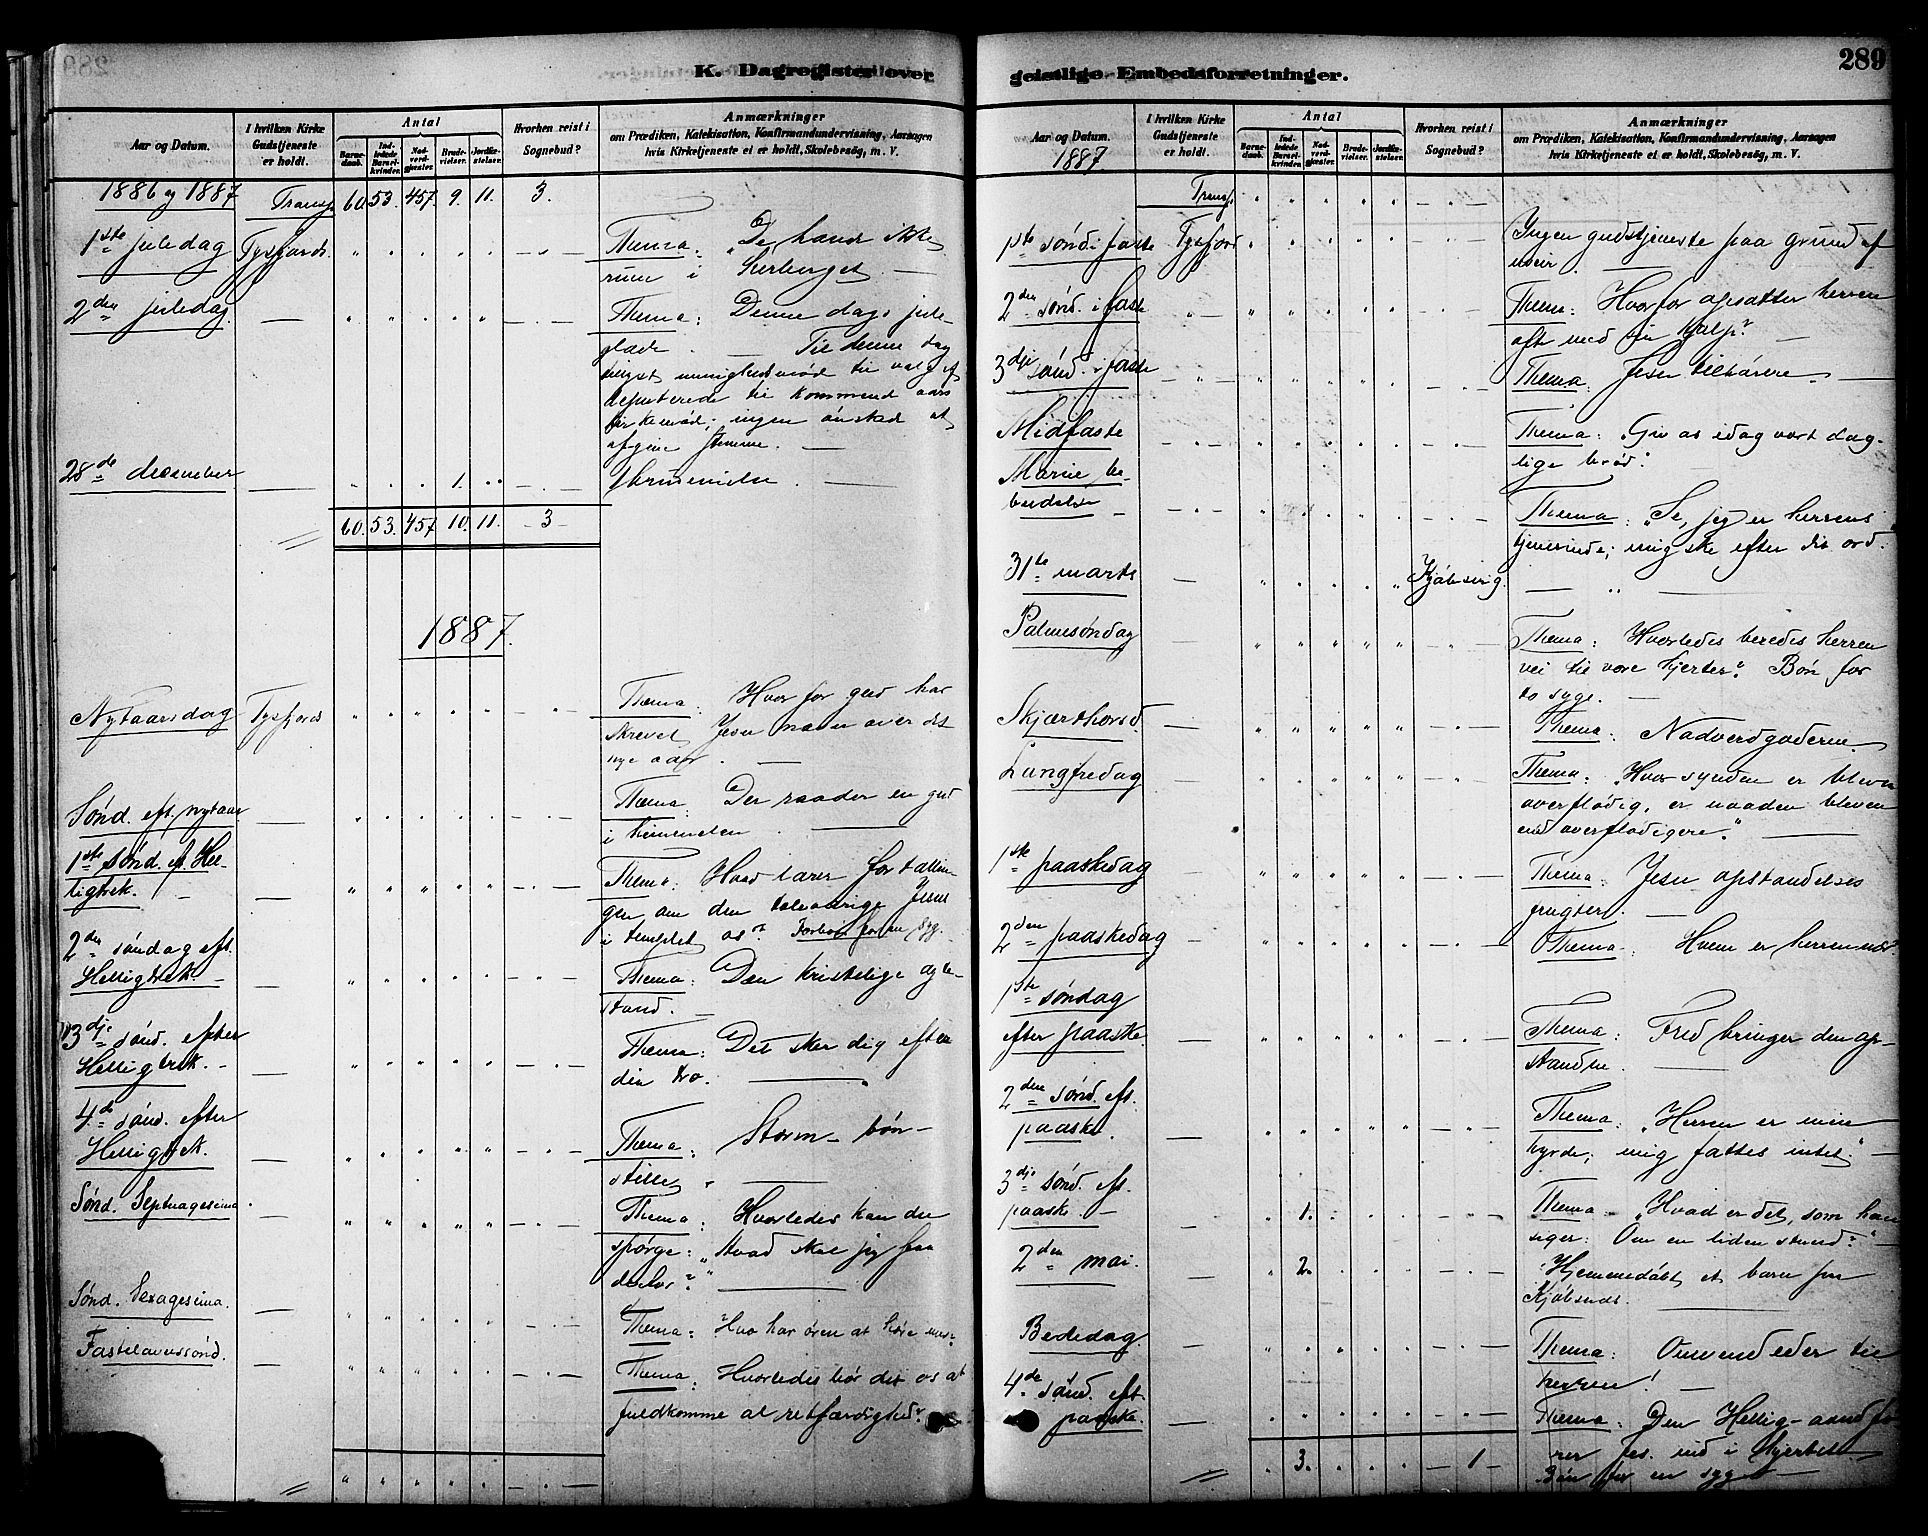 K. Dagregister over
Aar og Datum.
I hvilken Kirke Gudstjeneste er holdt.
Antal
Barne-daab.
Ind-ledede Barsel-kvinder.
Nad-verd-gjester.
Brude-vielser.
Jordfæ-stelser.
Hvorhen reist i Sognebud?
Anmærkninger
om Prædiken, Katekisation, Konfirmandundervisning, Aarsagen
hvis Kirketjeneste ei er holdt, Skolebesøg, m. V.
1886 og 1887
Transp. 60. 53. 457. 9. 11. 3.
1ste juledag Tysfjord. Thema: "De havde ikke
rum i herberget
2den juledag. Thema: Denne dags jule-
glæde. Til denne dag
afgive stemme.
28de december 1.
60. 53. 457. 10. 11. 3
1887.
Nytaarsdag Tysfjord Thema: Hvorfor gud har
skrevet Jesu navn over det
nye aar.
Sønd. eft. nytaar Thema: Der raader en gud
i himmelen.
1ste sønd. ef. Hel- Thema: Hvad lærer fortællin-
ligtrek. gen om den tolvaarige Jesus
i templet os? Forbøn for en syg.
2den søndag eft.
Helligtrek. Thema: Den kristelige ægte-
stand.
3dje sønd. efter
Helligtrek. Thema: Det sker dig efter
din tro.
4de sønd. efter
Helligtrek. Thema: Storm - bøn -
stille.
Sønd. Septuagesima. Thema: Hvorledes kan du
spørge: "Hvad skal jeg faa
derfor?"
Sønd. Sexagesima. Thema: Hvo har øren at høre med?
Fastelavnssønd. Thema: Hvorledes bør det os at
fuldkomme al retfærdighed?
geistlige Embedsforretninger.
289
Aar og Datum.
1887.
I hvilken Kirke Gudstjeneste er holdt.
Antal
Barne-daab.
Ind-ledede Barsel-kvinder.
Nad-verd-gjester.
Brude-vielser.
Jordfæ-stelser.
Hvorhen reist i Sognebud?
Anmærkninger
om Prædiken, Katekisation, Konfirmandundervisning, Aarsagen
hvis Kirketjeneste ei er holdt, Skolebesøg, m. V.
Transp.
1ste sønd. i faste Tysfjord Ingen gudstjeneste paa grund af
uveir.
2den sønd. i faste Thema: Hvorfor opsætter herren
ofte med sin hjælp?
3dje sønd. i faste Thema: Jesu tilhørere.
Midfaste Thema: "Giv os idag vort dag-
lige brød."
Marie be-
budelse Thema: "Se, jeg er herrens
tjenerinde; mig ske efter dit ord."
31te marts Kjøbsvig.
Palmesøndag Thema: Hvorledes beredes herren
vei til vore hjerter? Bøn for
to syge.
Skjærthorsd. Thema: Nadverdgoderne.
Langfredag Thema: "Hvor synden er bleven
overflødig, er naaden bleven
end overflødigere."
1ste paaskedag Thema: Jesu opstandelses
frugter.
2den paaskedag Thema: Hvem er herren nær?
1ste søndag
efter paaske. Thema: Fred bringer den op-
standne.
2den sønd. eft.
paaske. Thema: "Herren er min
hyrde; mig fattes intet."
3dje sønd. eft.
paaske. 1. Thema: "Hvad er det, som han
siger: Om en liden stund?"
2den mai. 2. Hjemmedøbt et barn fra
Kjøbsnes.
Bededag Thema: Omvend eder til
herren!
4de sønd. eft.
paaske. Thema: Den Hellig-aand fø-
rer Jes. ind i hjertet.
Bøn for en syg
3. 1